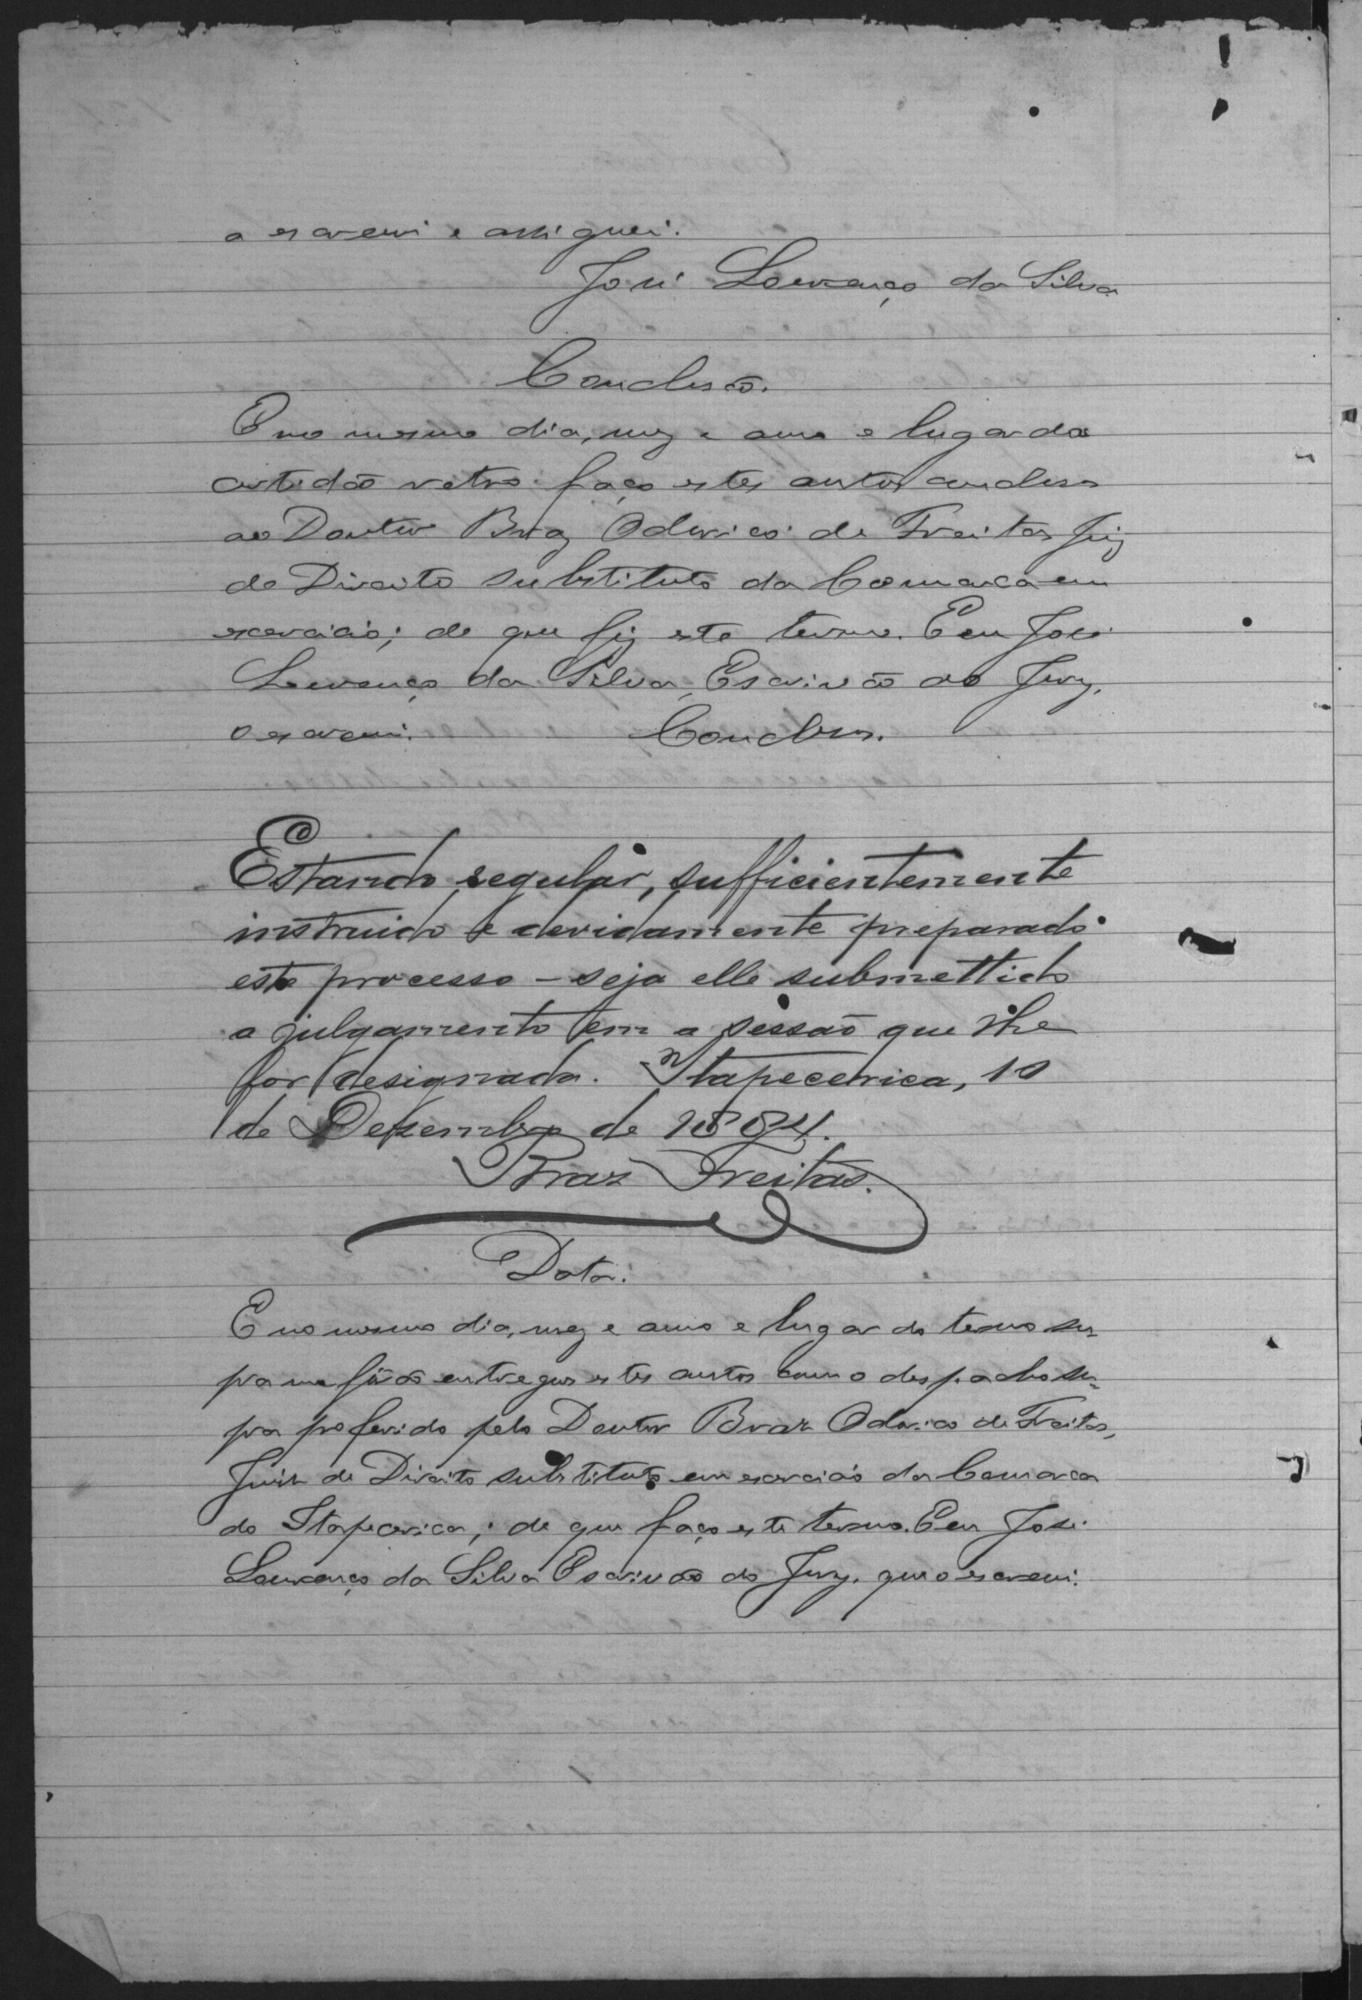 o escrevi e assignei.
José Lourenço da Silva
Conclusão.
E no mesmo dia, mez e anno e lugar da
certidão retro faço estes autos concluso
ao Doutor Braz Odorico de Freitas Juiz
de Direito substituto da Comarca em
exercicio; de que fiz este termo. E eu José
Lourenço da Silva, Escrivão do Jury,
o escrevi. Conclusos.
Estando regular, sufficientemente
instruido e devidamente preparado
este processo - seja elle submettido
a julgamento em a sessão que lhe
for designada. Itapecerica, 10
de Dezembro de 1884.
Braz Freitas.
Data:
E no mesmo dia, mez e anno e lugar do termo su-
pra me forão entregues estes autos com o despacho su-
pra proferido pelo Doutor Braz Odorico de Freitas,
Juiz de Direito substituto em exercicio da Comarca
de Itapecerica; de que faço este termo. E eu José
Lourenço da Silva Escrivão do Jury, que o escrevi.